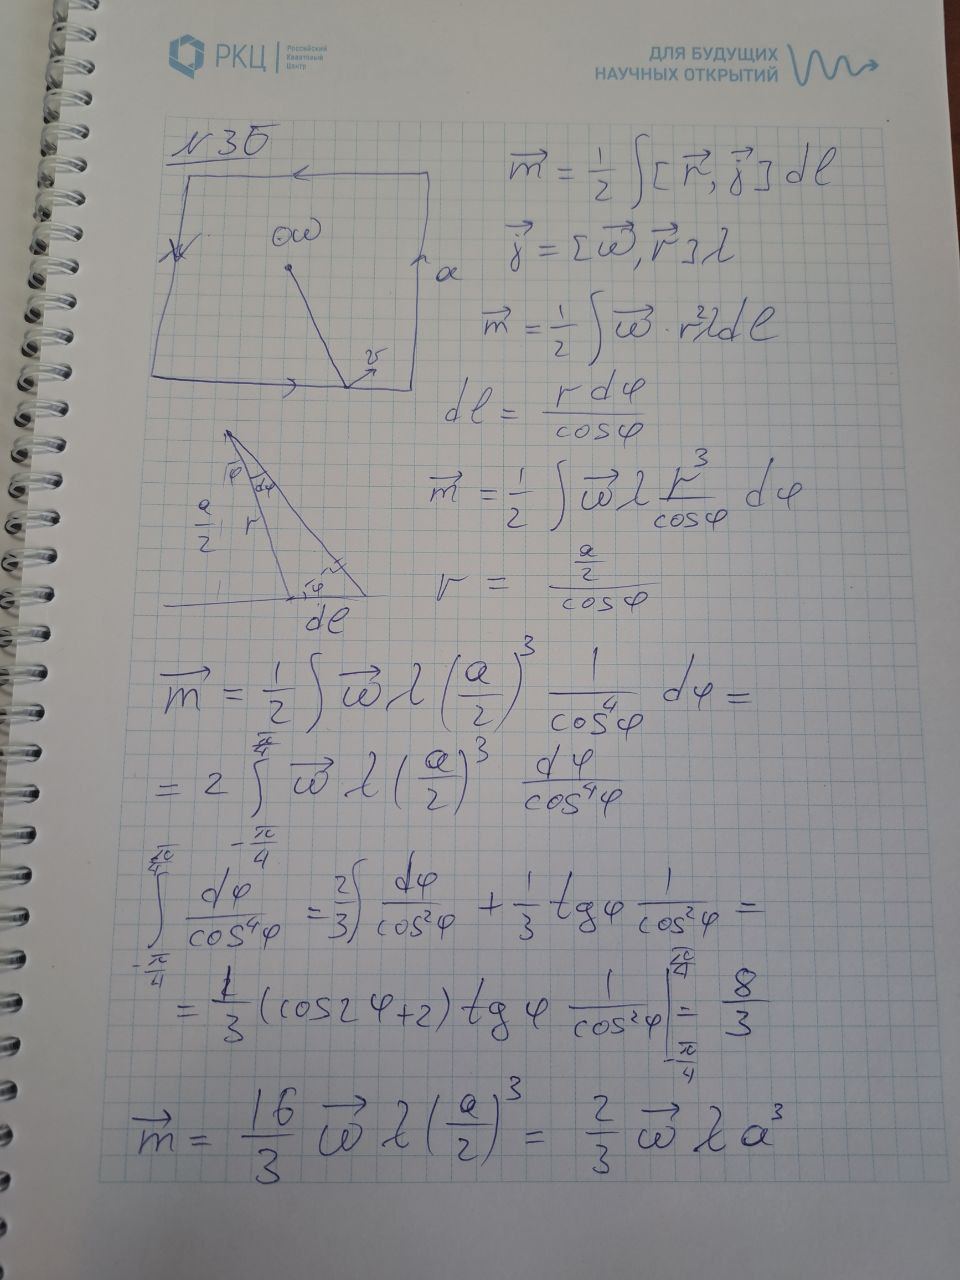 РКЦ
Российский
Квантовый
Центр
ДЛЯ БУДУЩИХ
НАУЧНЫХ ОТКРЫТИЙ
N3б
⊙ω
a
v
m⃗ = 1/2 ∫[r⃗, j⃗] dl
j⃗ = [ω⃗, r⃗] λ
m⃗ = 1/2 ∫ ω⃗ · r² λ dl
dl = r dφ / cosφ
φ
dφ
a/2
r
φ
dl
m⃗ = 1/2 ∫ ω⃗ λ r³/cosφ dφ
r = (a/2) / cosφ
m⃗ = 1/2 ∫ ω⃗ λ (a/2)³ 1/cos⁴φ dφ =
= 2 ∫_{-π/4}^{π/4} ω⃗ λ (a/2)³ dφ/cos⁴φ
∫_{-π/4}^{π/4} dφ/cos⁴φ = 2/3 ∫ dφ/cos²φ + 1/3 tgφ 1/cos²φ =
= 1/3 (cos2φ+2) tgφ 1/cos²φ |_{-π/4}^{π/4} = 8/3
m⃗ = 16/3 ω⃗ λ (a/2)³ = 2/3 ω⃗ λ a³